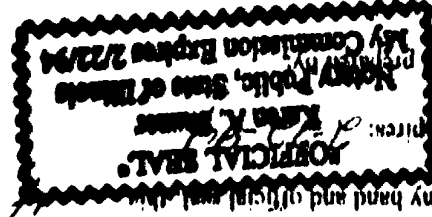 my hand and official seal, this
"OFFICIAL SEAL"
expires:
Karen K.
Notary Public, State of Illinois
prepared by
My Commission Expires 2/22/94